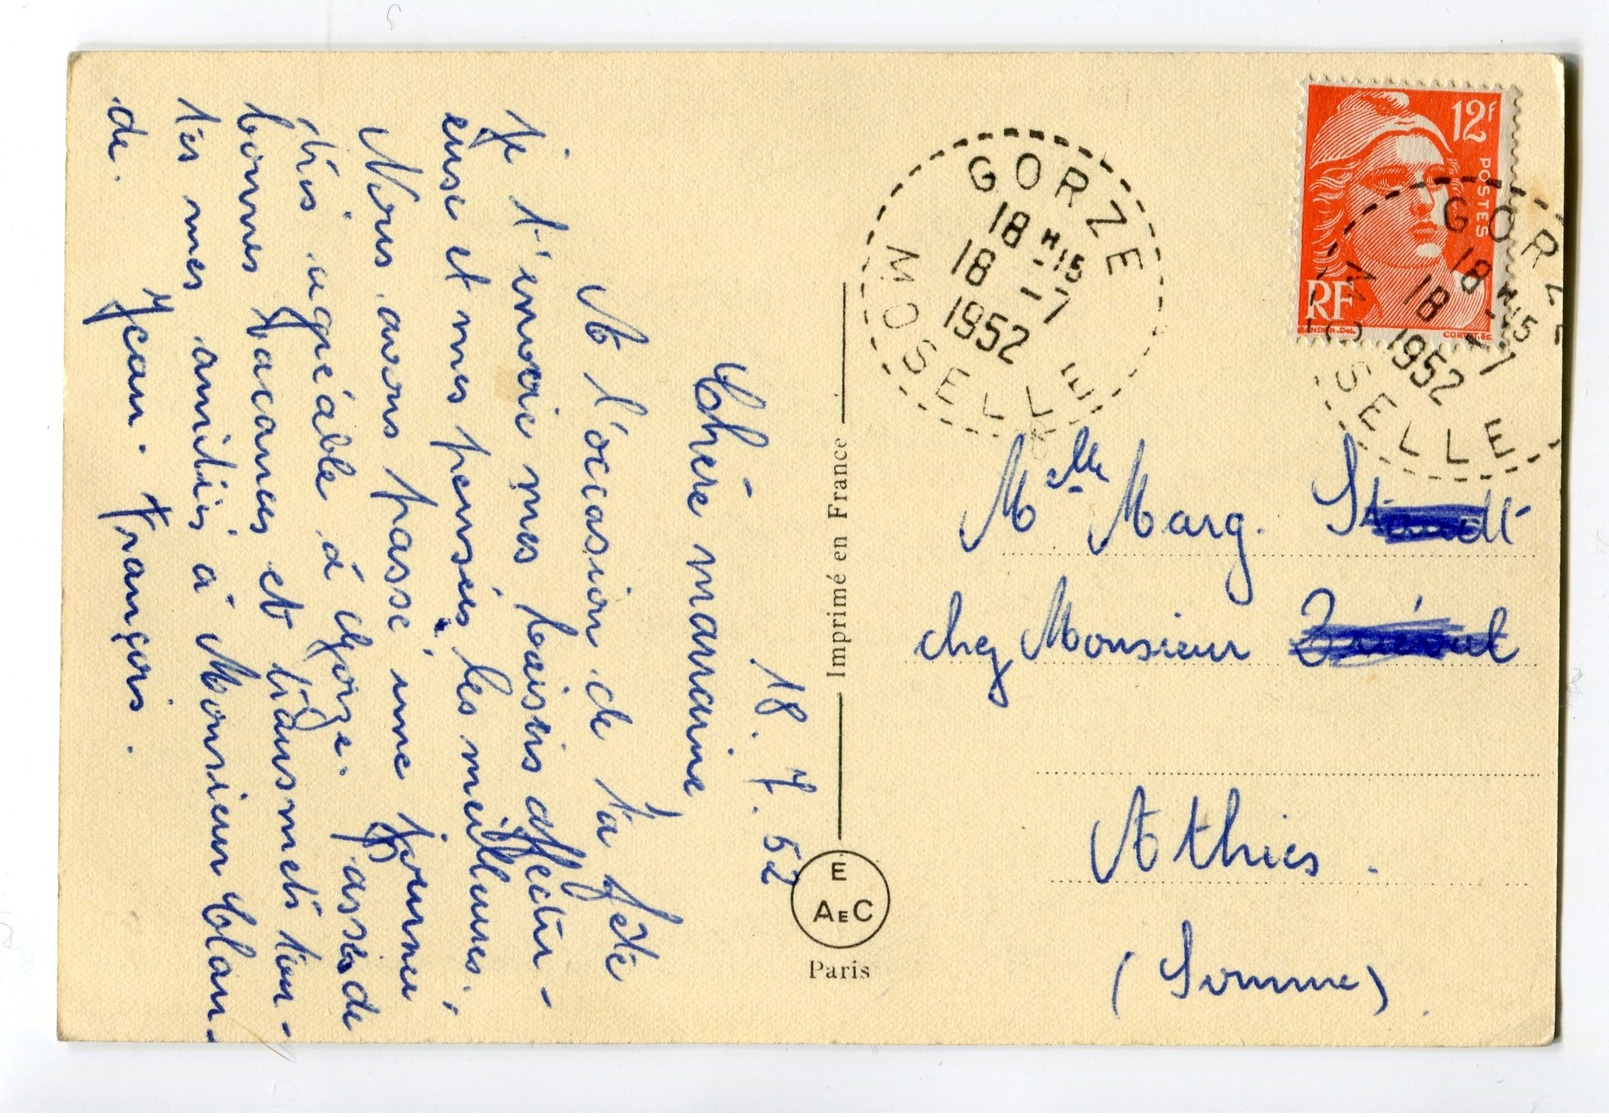 18.7.52
Chère marraine
A l'occasion de ta fête
je t'envoie mes baisers affectu-
euse et mes pensées les meilleures.
Nous avons passé une journée
très agréable à Gorze. Passe de
bonnes vacances et transmets tou-
tes mes amitiés à Monsieur Clau-
de.
Jean-François.
Imprimé en France
E
AEC
Paris
GORZE
18H15
18-7
1952
MOSELLE
12F
POSTES
RF
GORZE
18H15
18-7
1952
MOSELLE
Melle Marg.
chez Monsieur
Athies.
(Somme).